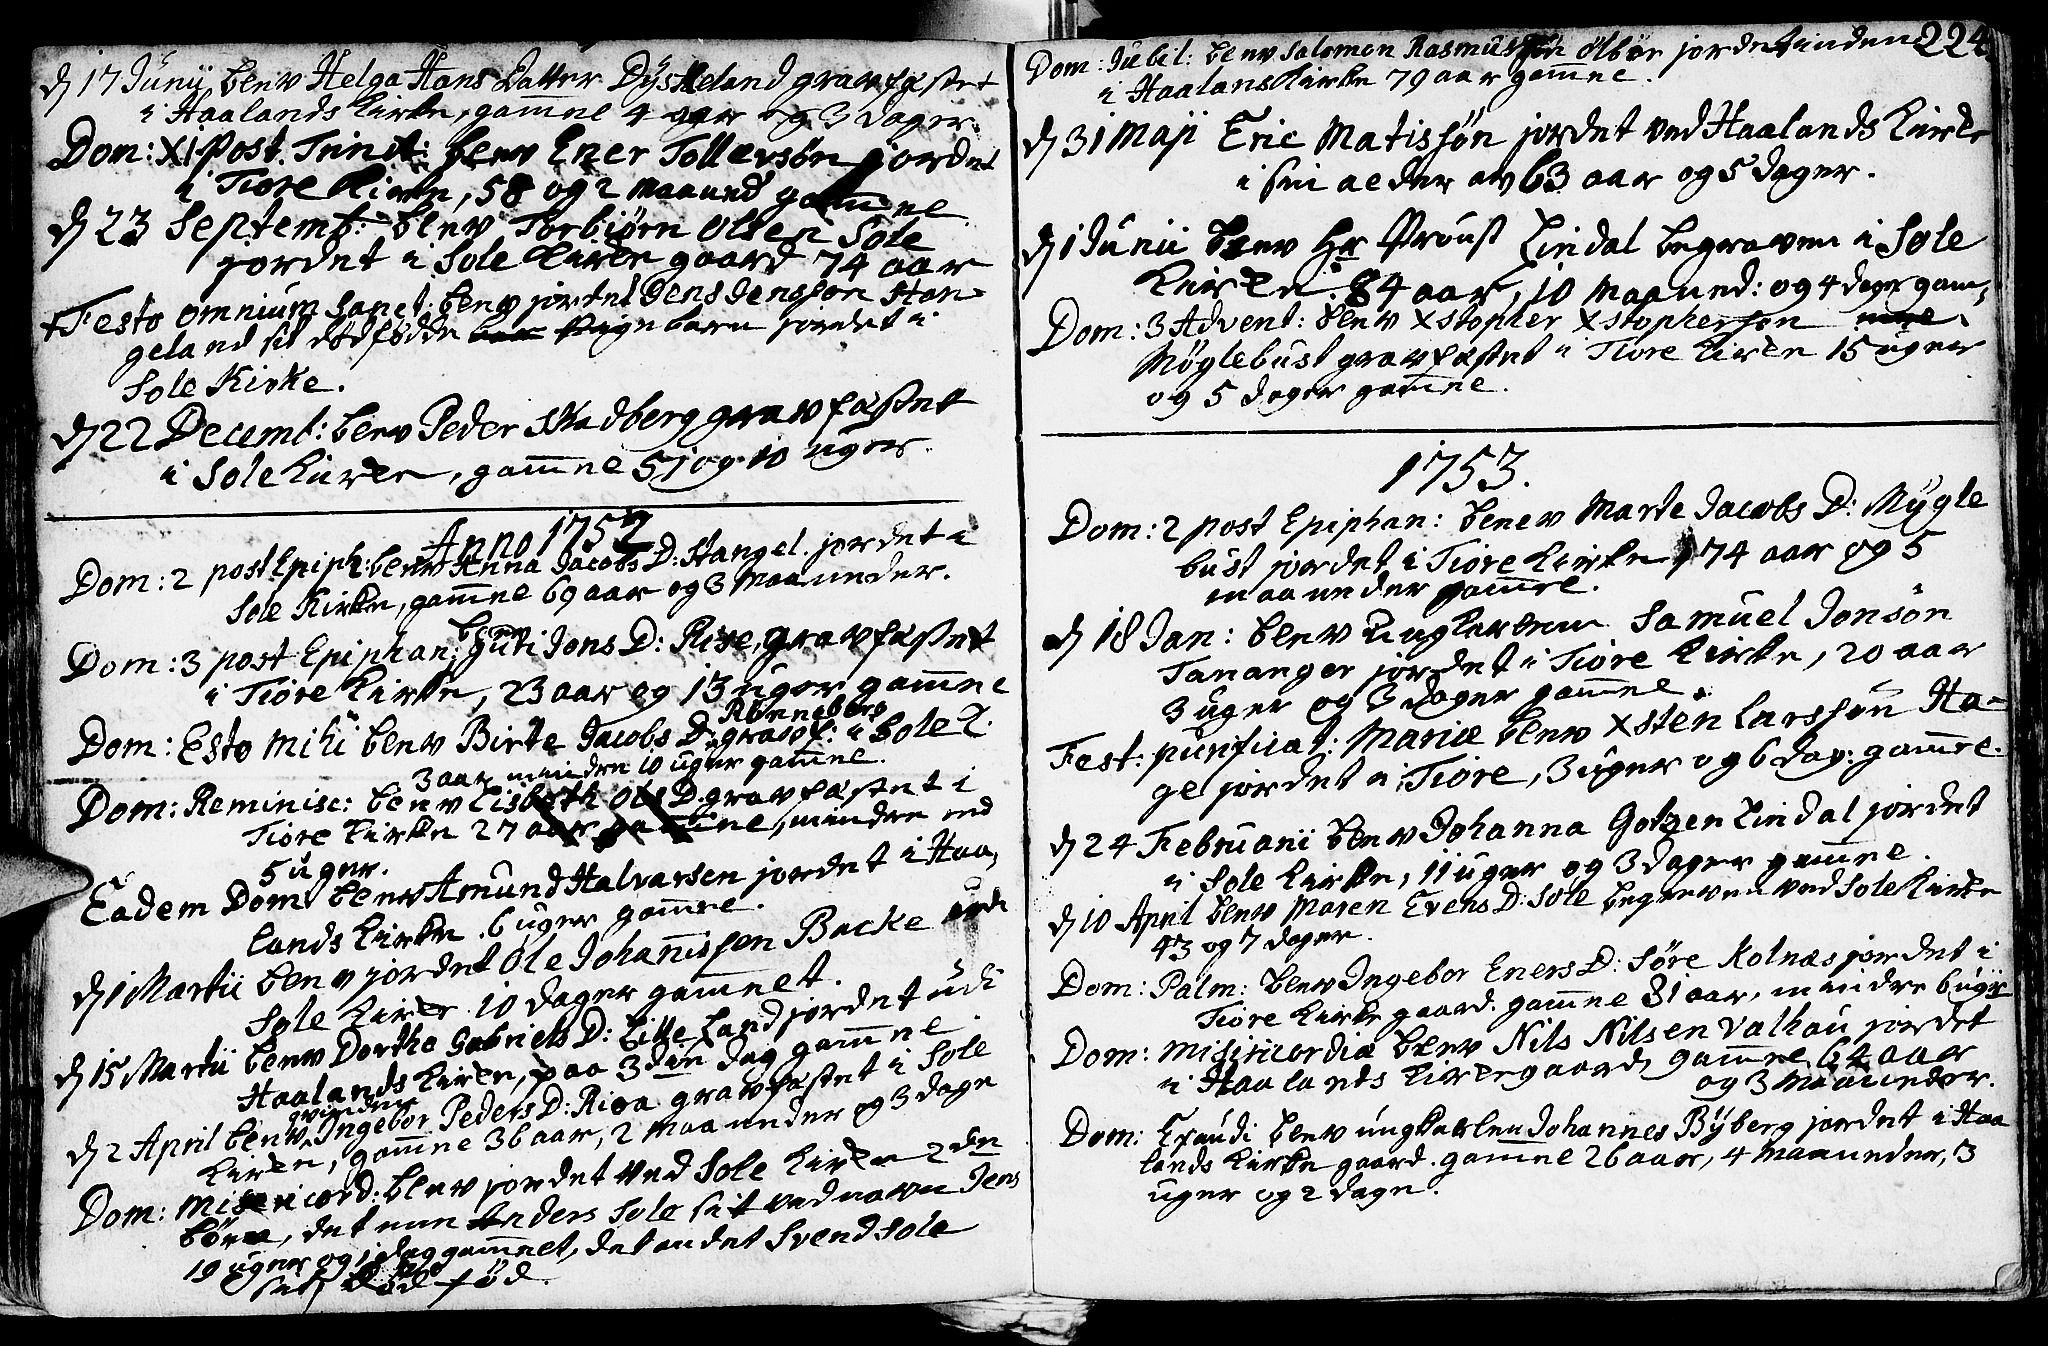 d 17 Junii blew Helga Hans Datter Dyskeland gravfæstet
i Haalands Kirke, gamle 4 aar og 3 dager.
Dom: XI post Trinit: blew Ener Tollevsön jordet
i Tiore Kirke, 58 og 2 Maaned gamle
d 23 Septemb: blew Torbiørn Olsen Sole
jordet i Sole Kirke gaard 74 aar
Festo omnium Sanct. blew jordet Jens Jensson Han
geland sit dødfødde Pigebarn jordet i
Sole Kirke.
d 22 Decemb: blew Peder Skadberg gravfæstet
i Sole Kirke, gamle 51 og 10 uger.
Anno 1752
Dom: 2 post Epiph: blew Anna Jacobs D: Hangel. jordet i
Sole Kirke, gamle 69 aar og 3 Maaneder.
Dom: 3 post Epiphan: blew Guri Jons D: Rise, gravfæstet
i Tiore Kirke, 23 aar og 13 uger gamle
Dom: Esto mihi blew Birte Jacobs D: Rønneberg gravf: i Sole K.
3 aar mindre 10 uger gamle.
Dom: Reminisc: blew Lisbeth Ols D. gravfæstet i
Tiore Kirke 27 aar gamle, mindre end
5 uger.
Eadem Dom blew Amund Halvarsen jordet i Haa,
lands Kirke. 6 uger gamle.
d 1 Martii blew jordet Ole Johanissen Backe
Sole Kirke 10 dager gamlet.
d 15 Martii blew Dorthe Gabriels D: Lille Land jordet udi
Haalands Kirke, paa 3den dag gamle
d 2 April blew qvinden Ingebor Peders D: Risa gravfæstet i Sole
Kirke, gamle 36 aar, 2 maaneder og 3 dage
Dom: Misericord: blew jordet ved Sole Kirke 2 dn
børn, det een Anders Sole sit ved navn Jens
19 uger og 1 dag gamlet, det andet Svend Sole
sit, død fød.
224
Dom: Jubil: blew Salomon Rasmussøn Ølbør jordet inden
i Haalans Kirke 79 aar gamle.
d 31 Maji Eric Matissøn jordet ved Haalands Kirke
i sin alder av 63 aar og 5 dager.
d 1 Junii blew Hr Proust Lindal begraven i Sole
Kirken. 84 aar, 10 Maaned: og 4 dager gam,
Dom: 3 Advent: blew Xstopher Xstophersøn mle.
Møglebust gravfæstet i Tiore Kirke 15 uger
og 5 dager gamle.
1753.
Dom: 2 post Epiphan: blew Marte Jacobs D: Mygle
bust jordet i Tiore Kirke, 74 aar og 5
maaneder gamle.
d 18 Jan: blew ungkarlen Samuel Jonsön
Tananger jordet i Tiore Kirke, 20 aar
3 uger og 3 dager gamle.
Fest: purificat: Mariæ blew Xsten Larssøn Ha-
ge jordet i Tiore, 3 uger og 6 dag: gamle.
d 24 Februarii blew Johanna Gotzen Lindal jordet
i Sole Kirke, 11 uger og 3 dager gamle.
d 10 April blew Maren Evens D: Sole begraven ved Sole Kirke
43 og 7 dager.
Dom: Palm: blew Ingebor Eners D: Søre Kolnæs jordet i
Tiore Kirke gaard. gamle 81 aar, mindre 6 ugir
Dom: Misiricordia blew Nils Nilsen Valhau jordet
i Haalands Kirkegaard, gamle 64 aar
og 3 Maaneder.
Dom: Exaudi blew ungkarlen Johannes Byberg jordet i Haa
lands Kirke gaard. gamle 26 aar, 4 Maaneder, 3
uger og 2 dage.